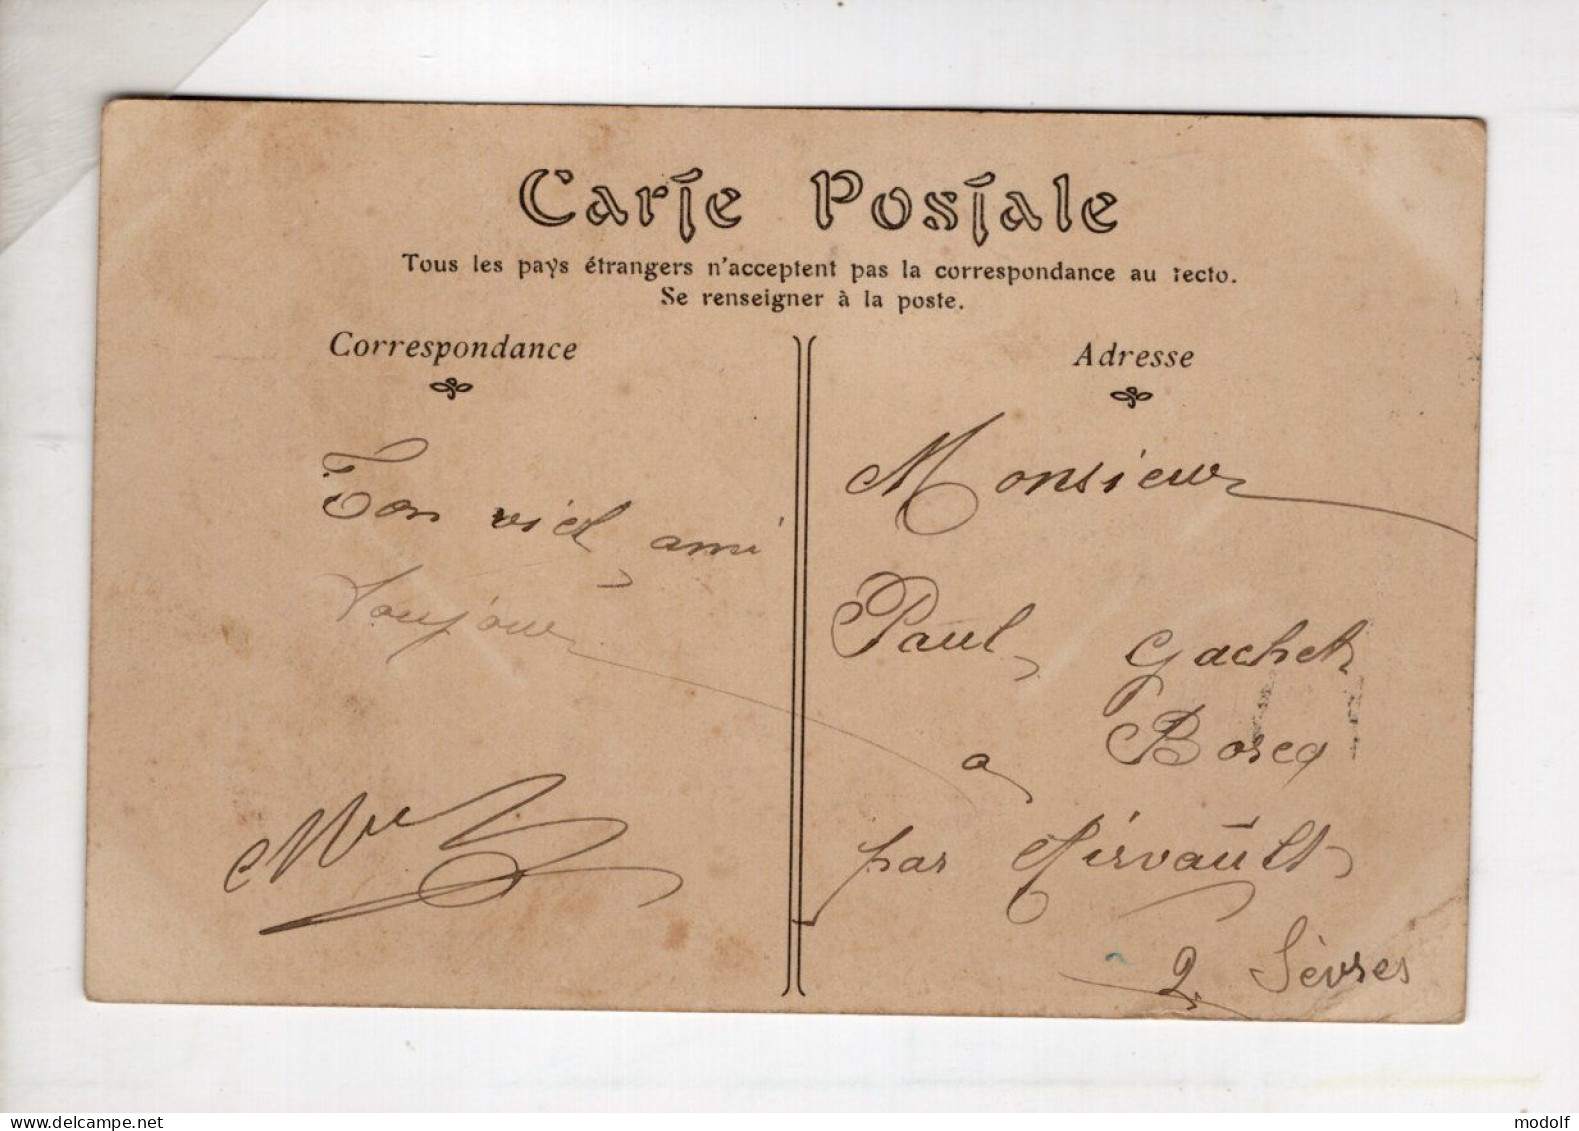 Carte Postale
Tous les pays étrangers n'acceptent pas la correspondance au recto.
Se renseigner à la poste.
Correspondance
Ton vieil ami
toujour
Adresse
Monsieur
Paul Gachet
a Borcq
par Airvault
2 Sèvres
delcampe.net
modolf